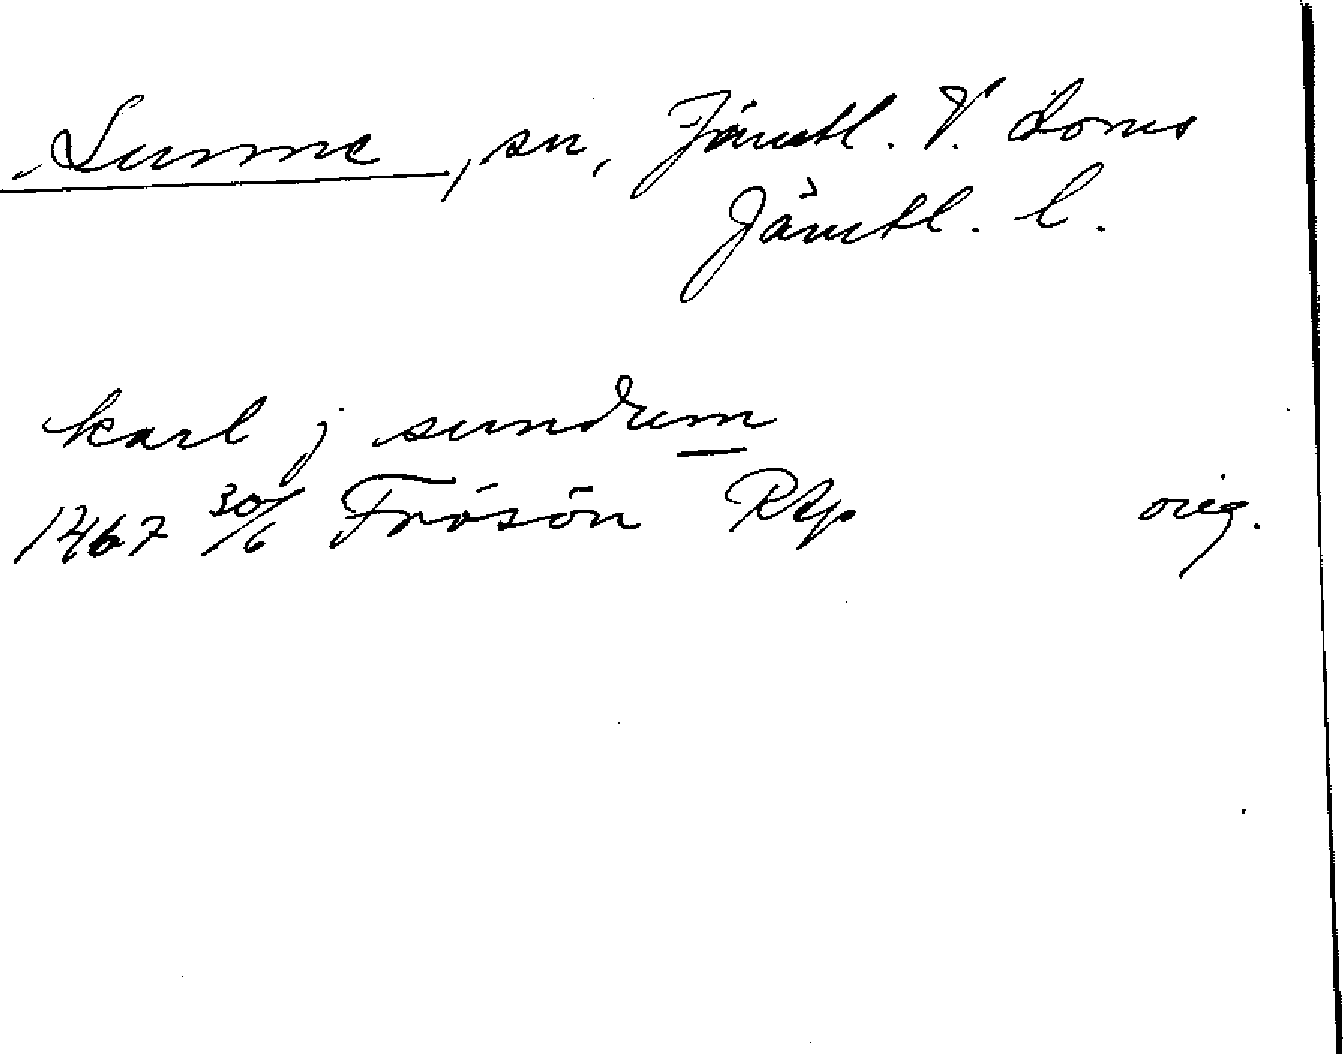 Sunne, sn, Jämtl. V. doms
Jämtl. l.
karl j sundum
1467 30/6 Frösön Rap orig.